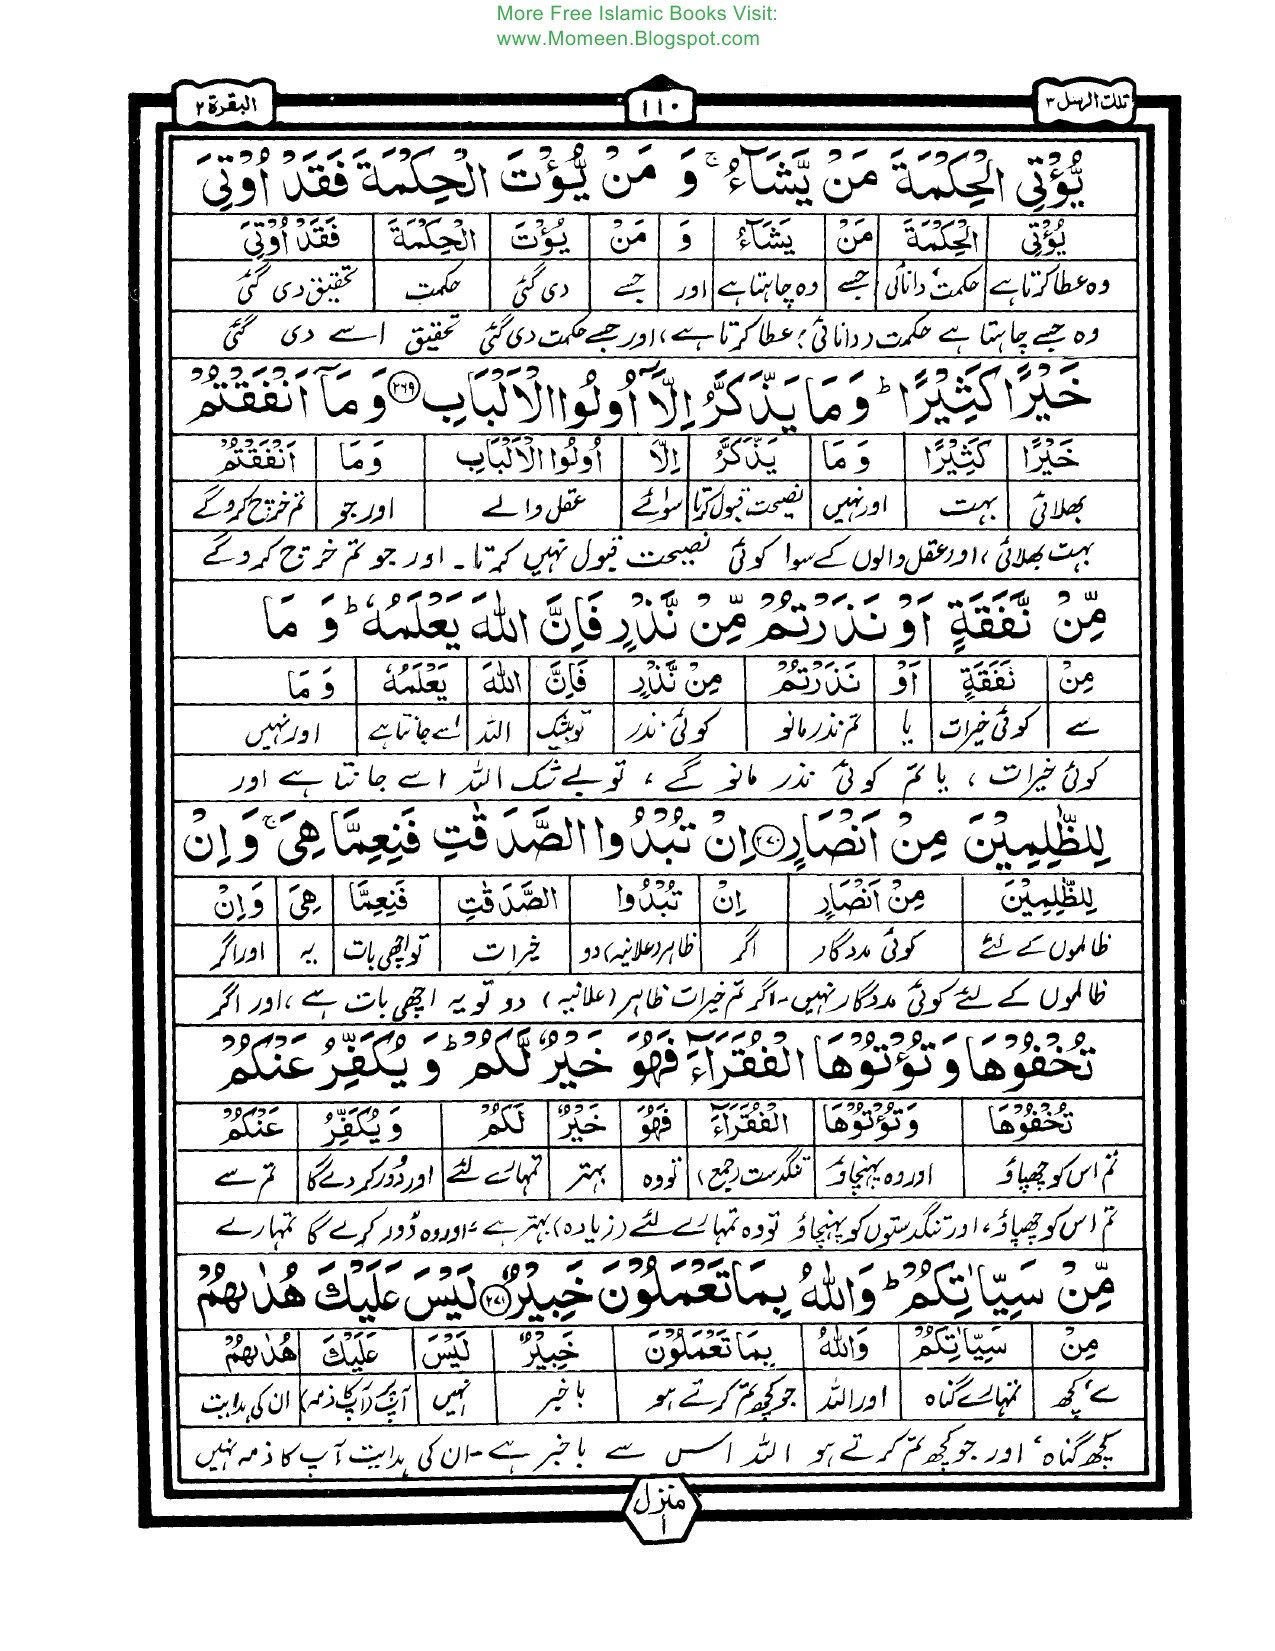 More Free Islamic Books Visit:
www.Momeen.Blogspot.com
تلك الرسل ٣ ١١٠ البقرة ٢
يُّؤْتِي الْحِكْمَةَ مَنْ يَّشَآءُ ۚ وَ مَنْ يُّؤْتَ الْحِكْمَةَ فَقَدْ اُوْتِيَ
يُؤْتِي الْحِكْمَةَ مَنْ يَشَآءُ وَ مَنْ يُؤْتَ الْحِكْمَةَ فَقَدْ اُوْتِيَ
وہ عطا کرتا ہے حکمت، دانائی جسے وہ چاہتا ہے اور جسے دی گئی حکمت تحقیق دی گئی
وہ جسے چاہتا ہے حکمت (دانائی) عطا کرتا ہے، اور جسے حکمت دی گئی تحقیق اسے دی گئی
خَيْرًا كَثِيْرًا ؕ وَ مَا يَذَّكَّرُ اِلَّاۤ اُولُوا الْاَلْبَابِ ۲۶۹ وَ مَاۤ اَنْفَقْتُمْ
خَيْرًا كَثِيْرًا وَ مَا يَذَّكَّرُ اِلَّا اُولُوا الْاَلْبَابِ وَمَا اَنْفَقْتُمْ
بھلائی بہت اور نہیں نصیحت قبول کرتا سوائے عقل والے اور جو تم خرچ کروگے
بہت بھلائی، اور عقل والوں کے سوا کوئی نصیحت قبول نہیں کرتا۔ اور جو تم خرچ کروگے
مِّنْ نَّفَقَةٍ اَوْ نَذَرْتُمْ مِّنْ نَّذْرٍ فَاِنَّ اللّٰهَ يَعْلَمُهٗ ؕ وَ مَا
مِنْ نَفَقَةٍ اَوْ نَذَرْتُمْ مِنْ نَّذْرٍ فَاِنَّ اللّٰهَ يَعْلَمُهٗ وَ مَا
سے کوئی خیرات یا تم نذر مانو کوئی نذر تو بیشک اللہ اسے جانتا ہے اور نہیں
کوئی خیرات، یا تم کوئی نذر مانو گے، تو بے شک اللہ اسے جانتا ہے اور
لِلظّٰلِمِيْنَ مِنْ اَنْصَارٍ ۲۷۰ اِنْ تُبْدُوا الصَّدَقٰتِ فَنِعِمَّا هِيَ ۚ وَاِنْ
لِلظّٰلِمِيْنَ مِنْ اَنْصَارٍ اِنْ تُبْدُوا الصَّدَقٰتِ فَنِعِمَّا هِيَ وَاِنْ
ظالموں کے لئے کوئی مددگار اگر ظاہر (علانیہ) دو خیرات تو اچھی بات یہ اور اگر
ظالموں کے لئے کوئی مددگار نہیں۔ اگر تم خیرات ظاہر (علانیہ) دو تو یہ اچھی بات ہے، اور اگر
تُخْفُوْهَا وَ تُؤْتُوْهَا الْفُقَرَآءَ فَهُوَ خَيْرٌ لَّكُمْ ؕ وَ يُكَفِّرُ عَنْكُمْ
تُخْفُوْهَا وَتُؤْتُوْهَا الْفُقَرَآءَ فَهُوَ خَيْرٌ لَكُمْ وَيُكَفِّرُ عَنْكُمْ
تم اس کو چھپاؤ اور وہ پہنچاؤ تنگدست (جمع) تو وہ بہتر تمہارے لئے اور دُور کردے گا تم سے
تم اس کو چھپاؤ، اور تنگدستوں کو پہنچاؤ تو وہ تمہارے لئے (زیادہ) بہتر ہے، اور وہ دُور کرے گا تمہارے
مِّنْ سَيِّاٰتِكُمْ ؕ وَاللّٰهُ بِمَا تَعْمَلُوْنَ خَبِيْرٌ ۲۷۱ لَيْسَ عَلَيْكَ هُدٰىهُمْ
مِنْ سَيِّاٰتِكُمْ وَاللّٰهُ بِمَا تَعْمَلُوْنَ خَبِيْرٌ لَيْسَ عَلَيْكَ هُدٰىهُمْ
سے، کچھ تمہارے گناہ اور اللہ جو کچھ تم کرتے ہو باخبر نہیں آپ پر (آپ کا ذمہ) ان کی ہدایت
کچھ گناہ، اور جو کچھ تم کرتے ہو اللہ اس سے باخبر ہے۔ ان کی ہدایت آپ کا ذمہ نہیں
منزل
١